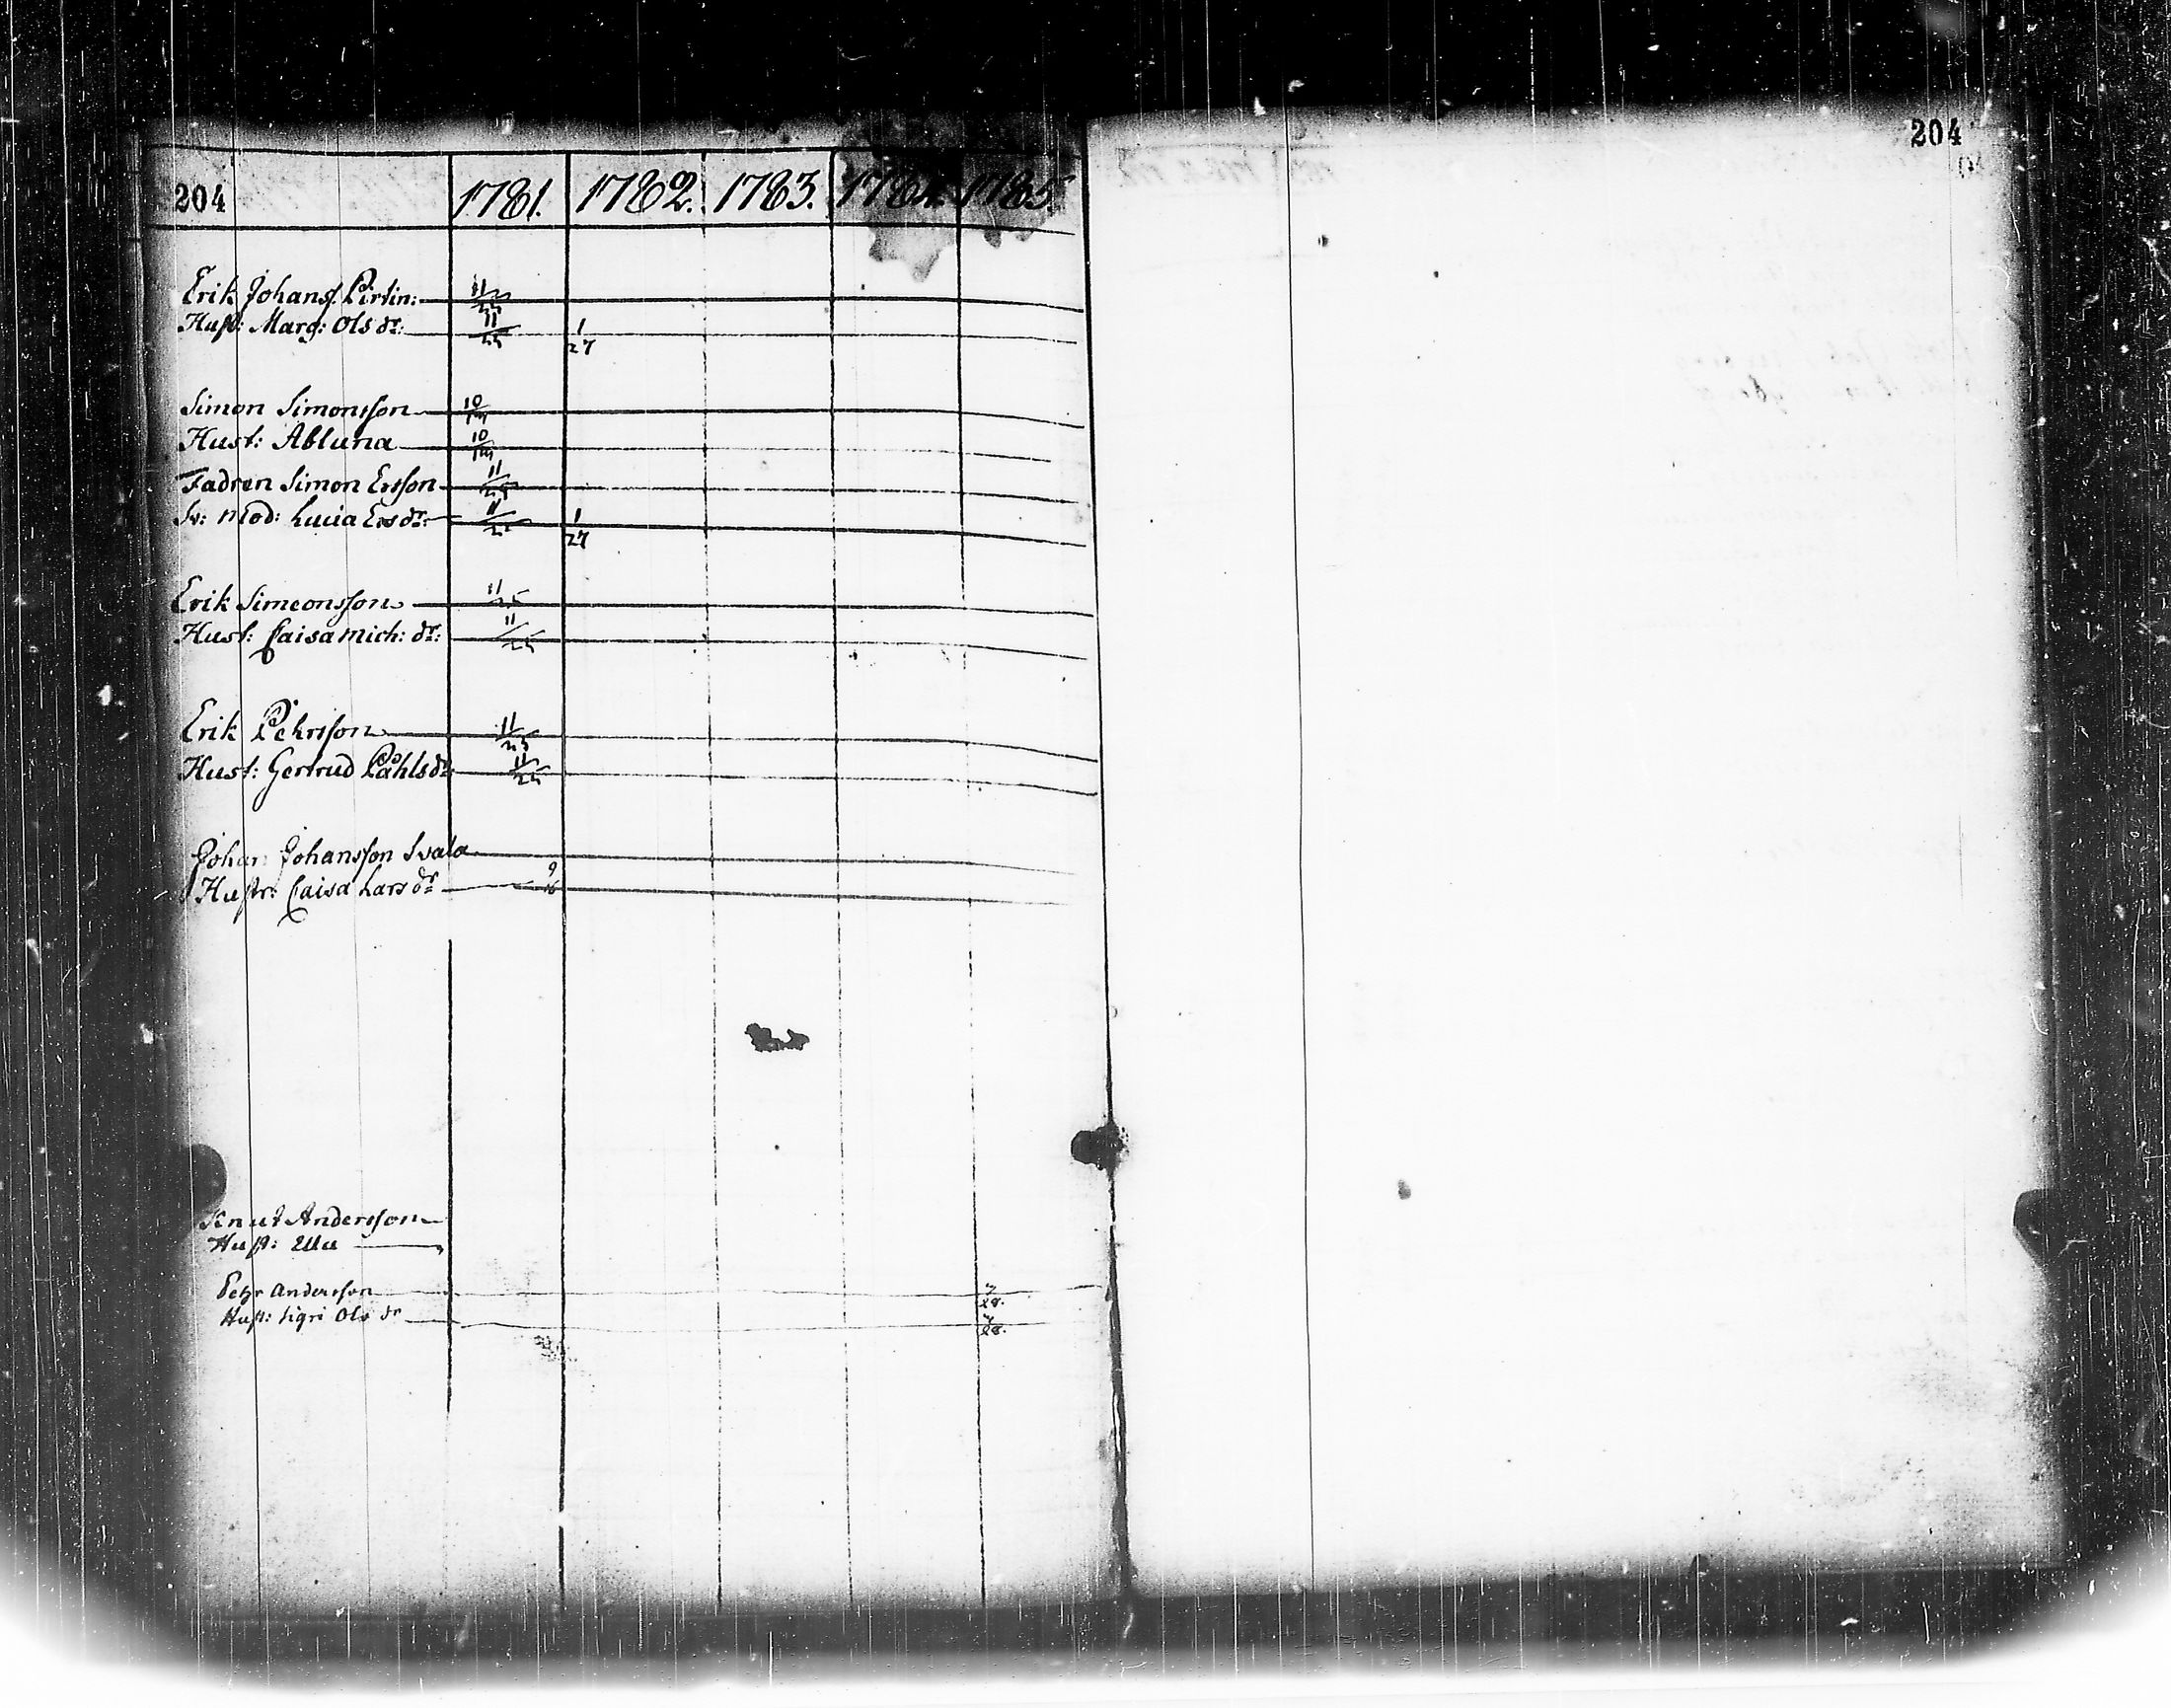 204
204 1781. 1782. 1783. 1784. 1785.
Erik Johansſ. Pirtin: 11/25
Hust: Marg: Ols dr: 11/25 1/27
Simon Simonsson 10/14
Hust: Abluna 10/14
Fadren Simon Ersson 11/25
Sv: Mod: Lucia Ers dr: 11/25 1/27
Erik Simeonsson 11/25
Hust: Caisa Mich: dr: 11/25
Erik Pehrsson 11/25
Hust: Gertrud Påhls dr: 11/25
Johan Johansson Svala
Hustr: Caisa Lars dr 9/16
Knut Andersson
Hust:
Pehr Andersson
Hust: Sigri Ols dr